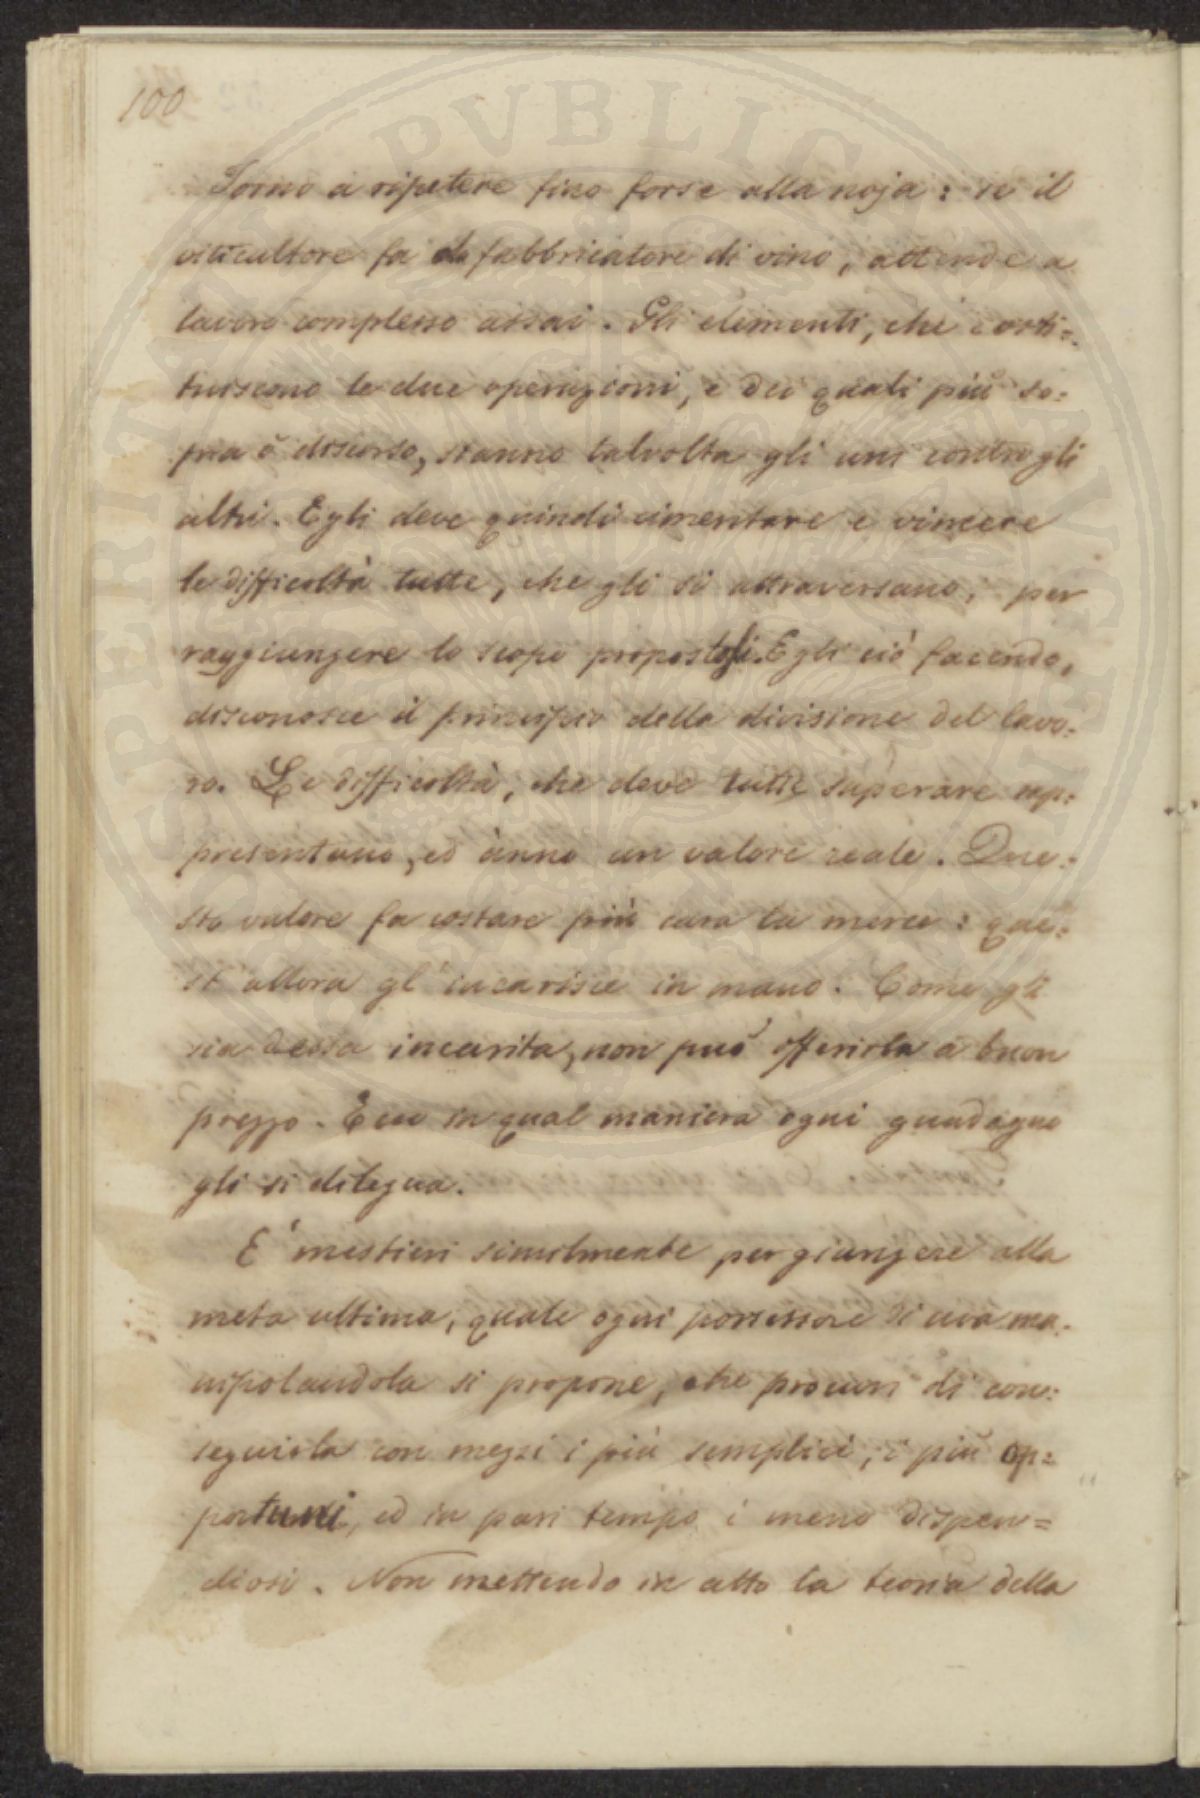 100
Torno a ripetere fino forse alla noja: se il
viticultore fa da fabbricatore di vino, attende a
lavoro complesso assai. Gli elementi, che costi=
tuiscono le due operazioni, e dei quali più so=
pra è discorso, stanno talvolta gli uni contro gli
altri. Egli deve quindi cimentare e vincere
le difficoltà tutte, che gli si attraversano, per
raggiungere lo scopo propostosi. Egli ciò facendo,
disconosce il principio della divisione del lavo=
ro. Le difficoltà, che deve tutte superare rap=
presentano, ed ànno un valore reale. Que=
sto valore fa costare più cara la merce: que=
st' allora gl' incarisce in mano. Come gli
sia dessa incarita, non può offerirla a buon
prezzo. Ecco in qual maniera ogni guadagno
gli si dilegua.
E' mestieri similmente per giungere alla
meta ultima, quale ogni possessore di uva ma=
nipolandola si propone, che procuri di con=
seguirla con mezzi i più semplici, i più op=
portuni, ed in pari tempo i meno dispen=
diosi. Non mettendo in atto la teoria della